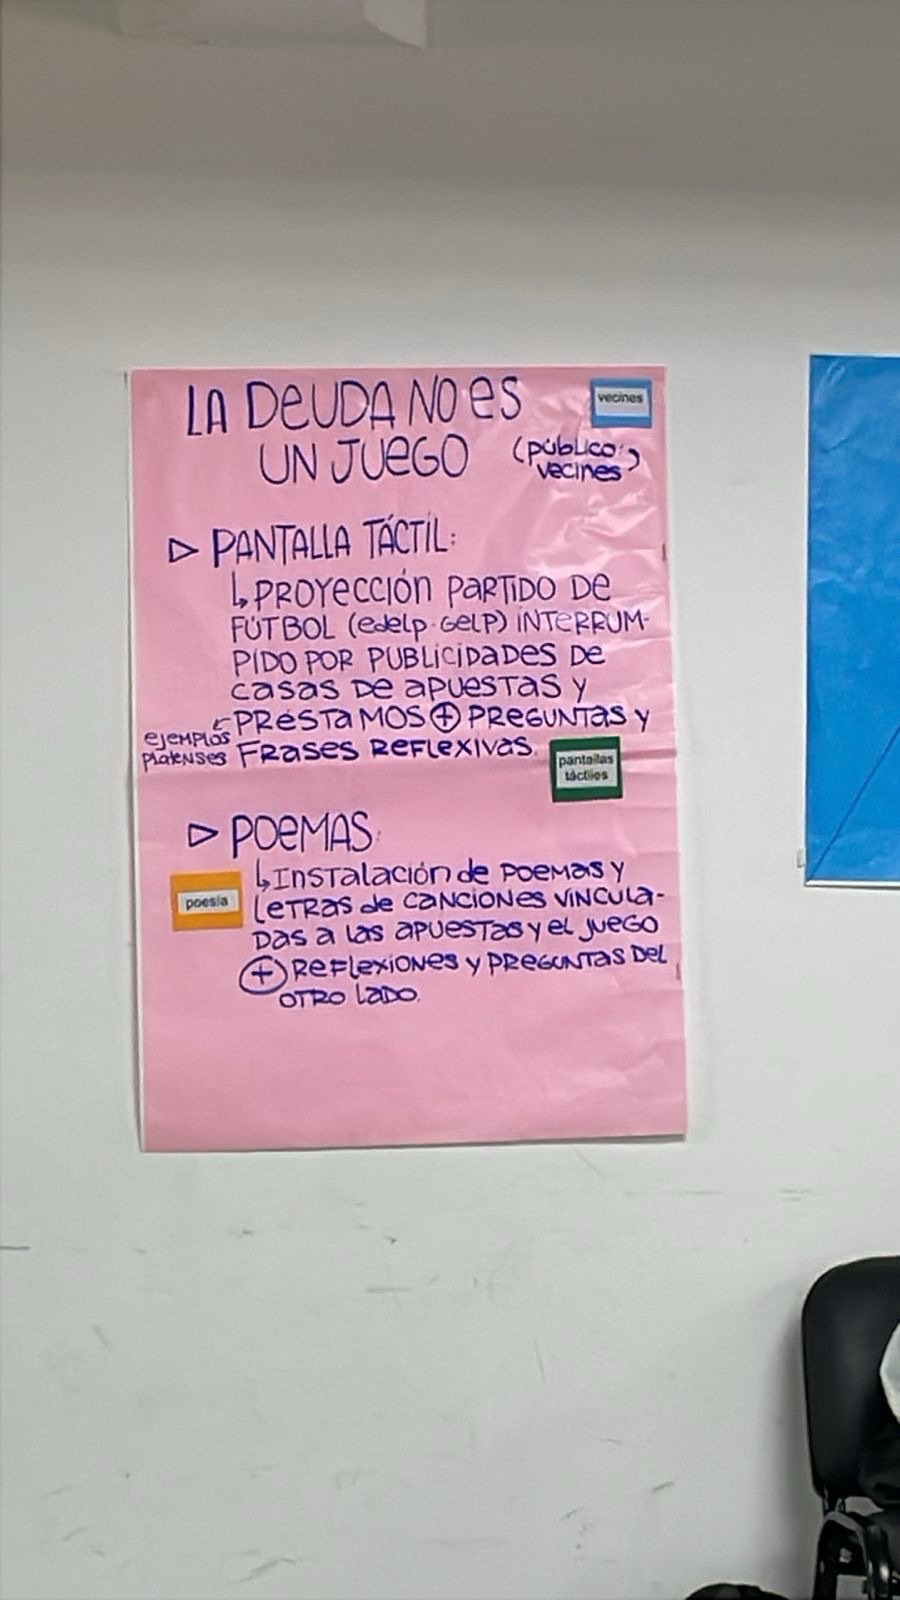 LA DEUDA NO ES
UN JUEGO
vecines
(público:
vecines)
▷ PANTALLA TÁCTIL:
↳ PROYECCIÓN PARTIDO DE
FÚTBOL (edelp-GELP) INTERRUM-
PIDO POR PUBLICIDADES DE
CASAS DE APUESTAS Y
PRÉSTAMOS ⊕ PREGUNTAS Y
FRASES REFLEXIVAS.
ejemplos
platenses
pantallas
táctiles
▷ POEMAS:
↳ INSTALACIÓN de POEMAS Y
LETRAS de CANCIONES VINCULA-
DAS A LAS APUESTAS Y EL JUEGO
⊕ REFLEXIONES Y PREGUNTAS DEL
OTRO LADO.
poesía